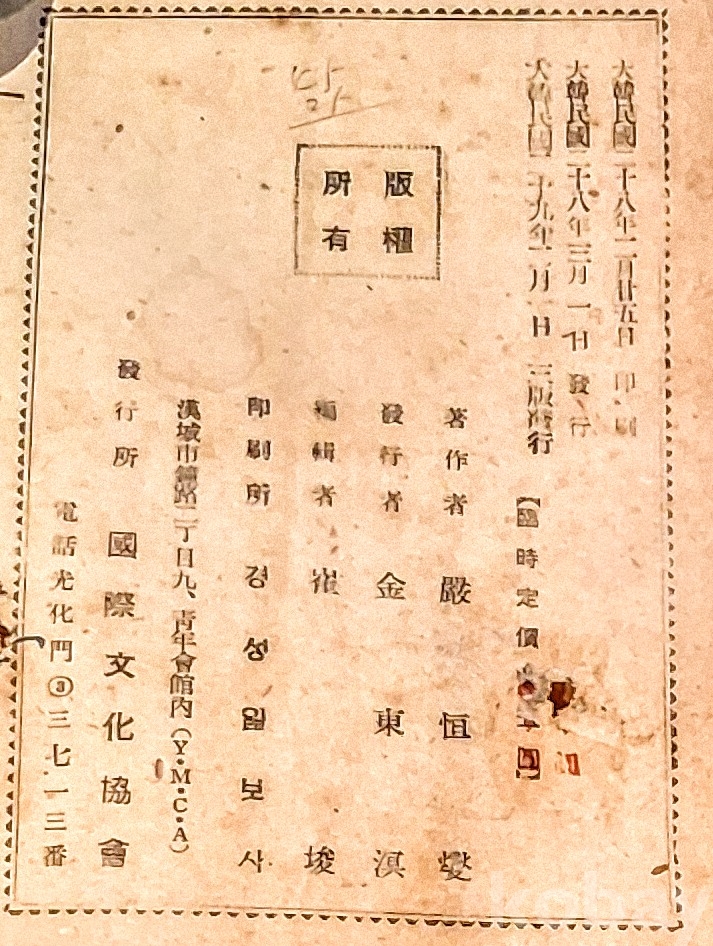 大韓民國二十八年二月廿五日 印刷
大韓民國二十八年三月一日 發行
大韓民國二十九年二月一日 三版發行
【臨時定價 圓】
版權
所有
著作者 嚴恒燮
發行者 金東溟
編輯者 崔埈
印刷所 경성일보사
漢城市鐘路二丁目九、靑年會館內(Y·M·C·A)
發行所 國際文化協會
電話光化門③三七一三番